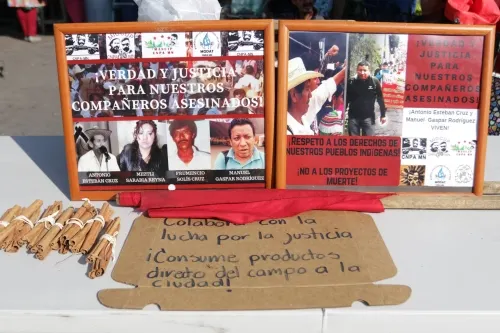 CNPA MN
MOCRI CNPA MN
¡VERDAD Y JUSTICIA
PARA NUESTROS
COMPAÑEROS ASESINADOS!
ANTONIO
ESTEBAN CRUZ
MEYTLI
SARABIA REYNA
FRUMENCIO
SOLÍS CRUZ
MANUEL
GASPAR RODRÍGUEZ
¡RESPETO A LOS DERECHOS DE
NUESTROS PUEBLOS INDÍGENAS!
¡NO A LOS PROYECTOS DE
MUERTE!
¡VERDAD Y JUSTICIA
PARA
NUESTROS
COMPAÑEROS
ASESINADOS!
¡Antonio Esteban Cruz y
Manuel Gaspar Rodríguez
VIVEN!
CNPA
MN
Colabora con la
lucha por la justicia
¡Consume productos
direto del campo a la
ciudad!